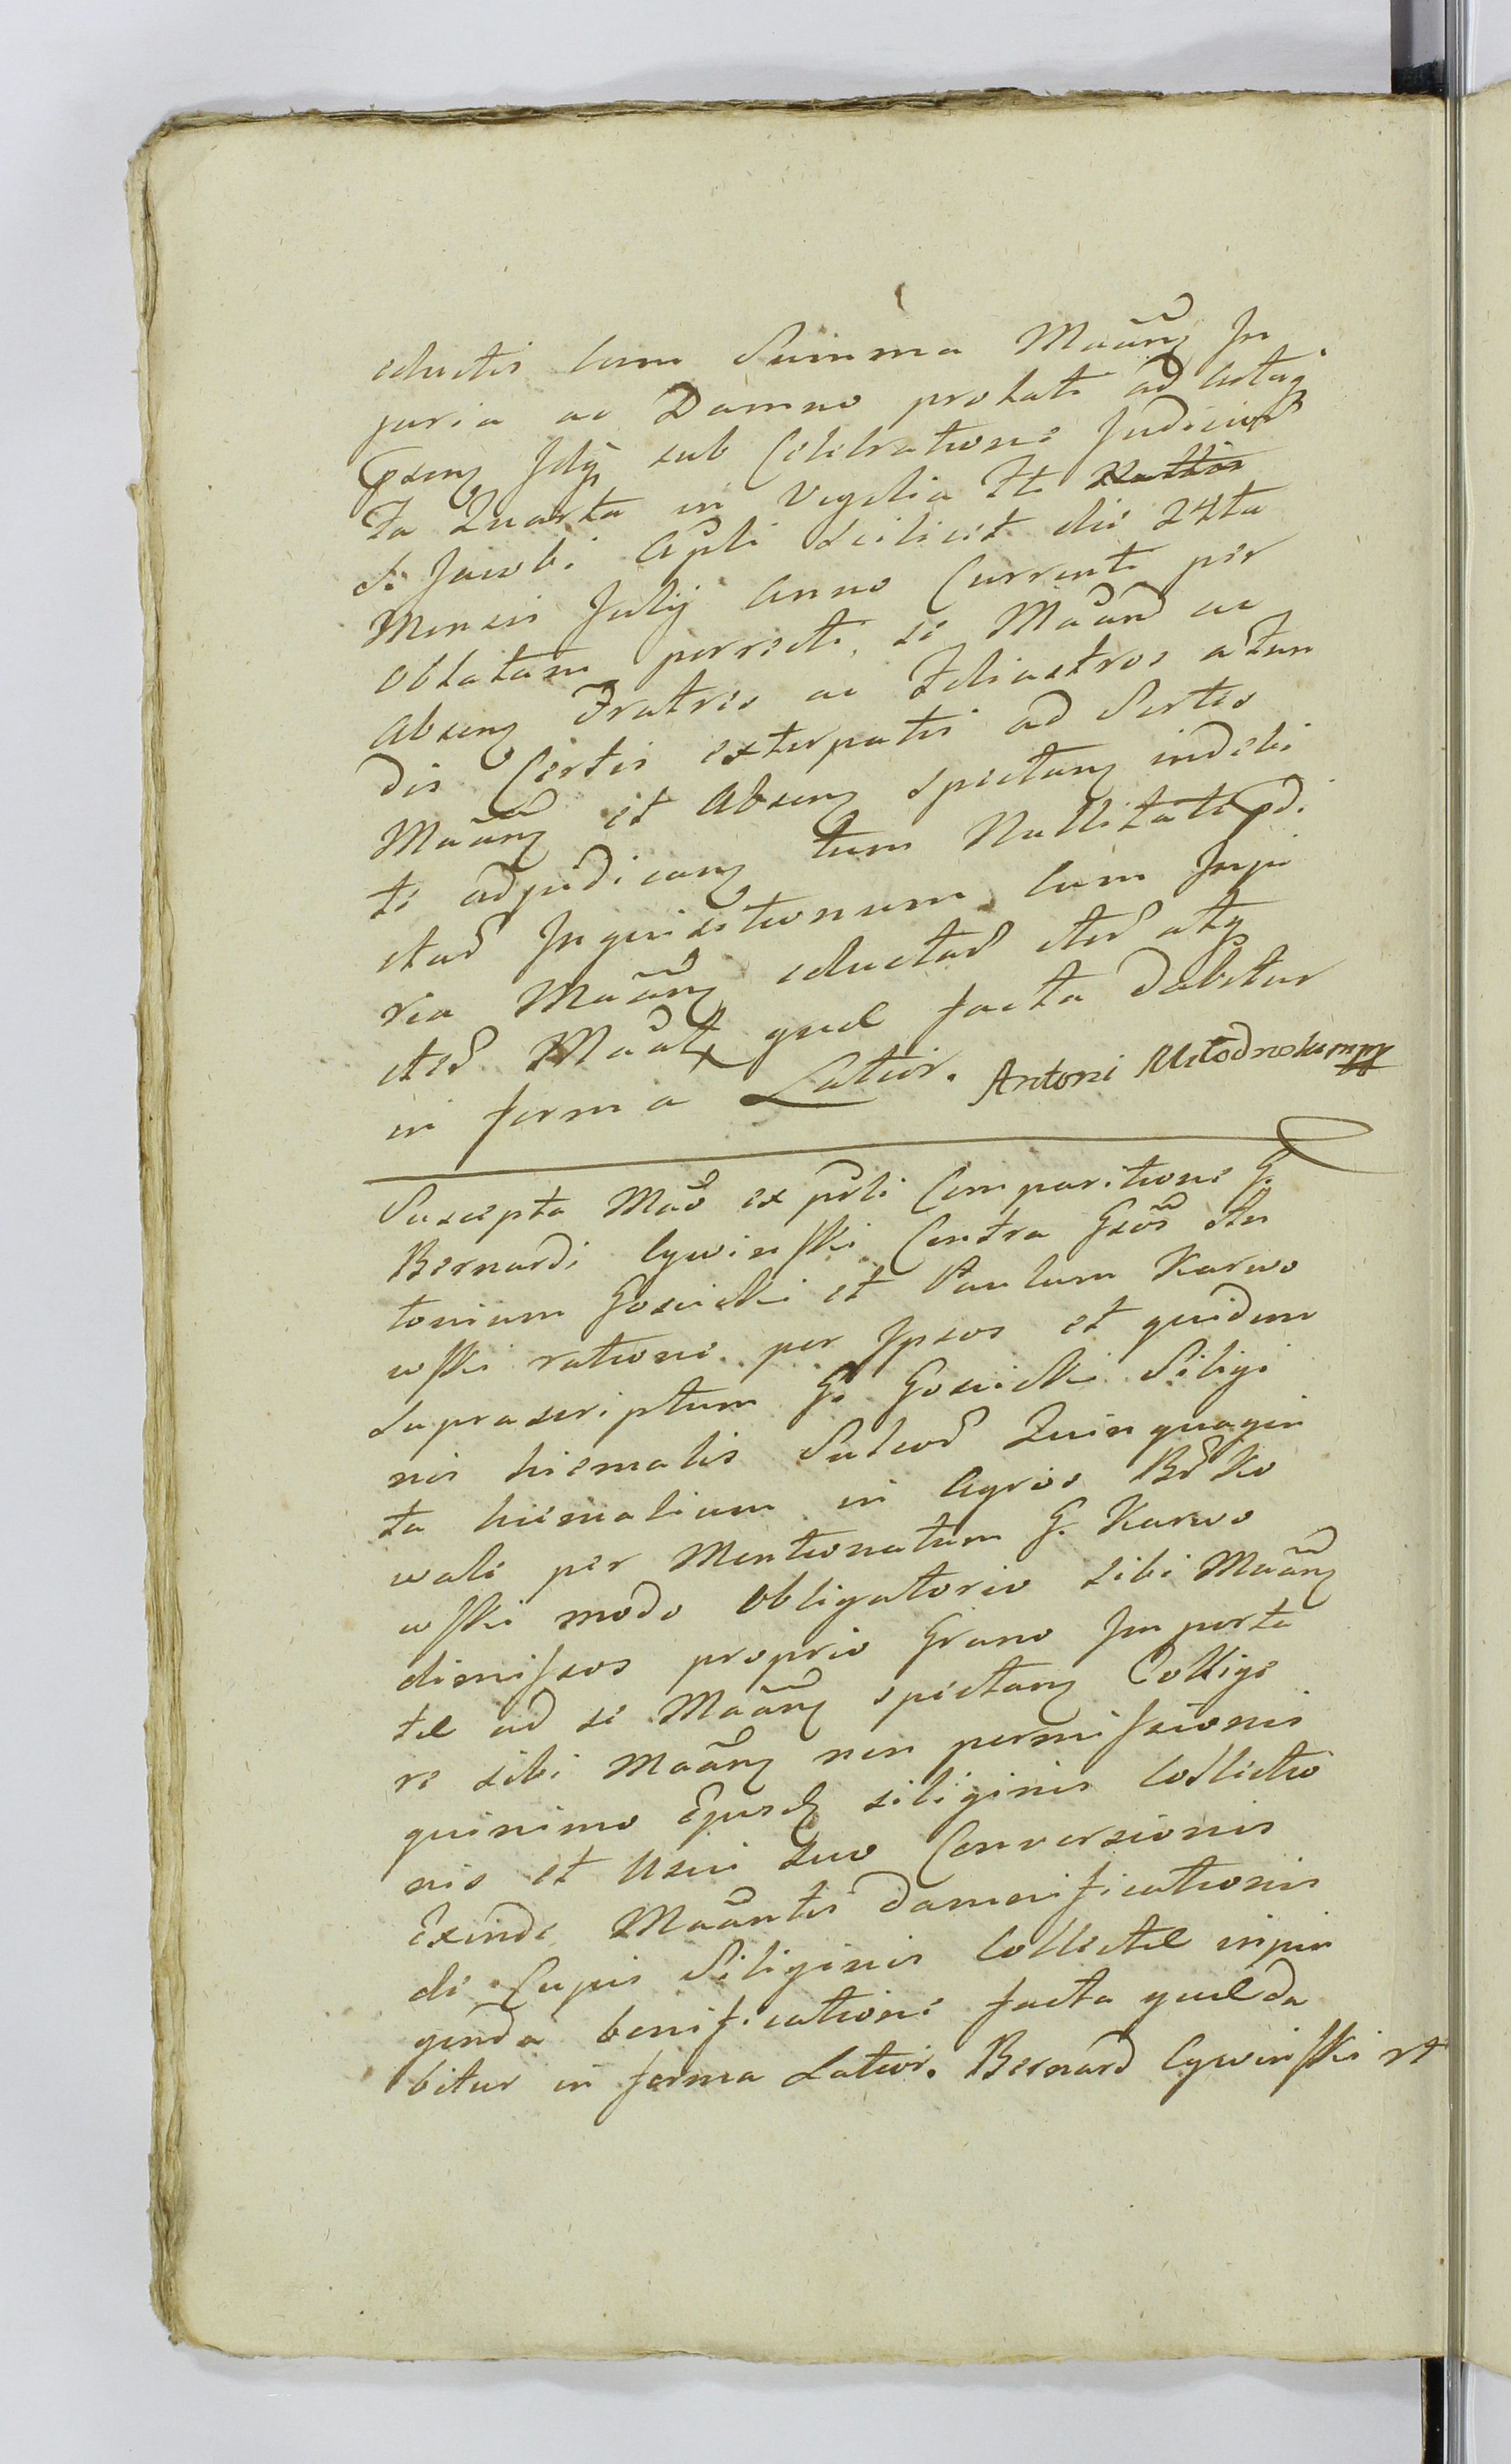 eductis cum Summa Maãnz In
juria ac Damno probati ad Actaqz
pñsenz Idqz sub Celebratione Judicior
ta Quarta in Vigilia Sti
S. Jacobi Apli scilicet die 24ta
Mensis Julij Anno Currenti per
oblatam porrecti, se Maãnd ac
absenz Fratres ac Filiastros a fun
dis Certis exturpatis ad Sortes
Maãnz et Absenz spectanz indebi
te adjudicanz tum Nullitate pd.
ctar Inquisitionum cum Inju
ria Maãnz eductar cted atqz
cted Maãlt quæ facta dabitur
in forma Latior. Antoni Młodnoski mpp
Suscepta Maõ ex psli Comparitione G.
Bernardi Cywinski Contra Gsos An
tonium Gosicki et Paulum Karwo
wski ratione per Ipsos et quidem
supra scriptum G. Gosicki Siligi
nis hiemalis Sulcor Quinquagin
ta hiemalium in Agros Bd Ko
wali per Mentionatum G. Karwo
wski modo obligatorio sibi Maãnz
dimissos proprio Grano Importa
tæ ad se Maãnz spectanz Collige
re sibi Maãnz non permissionis
quinimo Ejusdz siliginis Collectio
nis et Usui suo Conversionis
Exinde Maãntis damnificationis
de Cujus Siliginis Collectæ injun
genda bonificatione facta quæ da
bitur in forma Latior. Bernard Cywinski rt